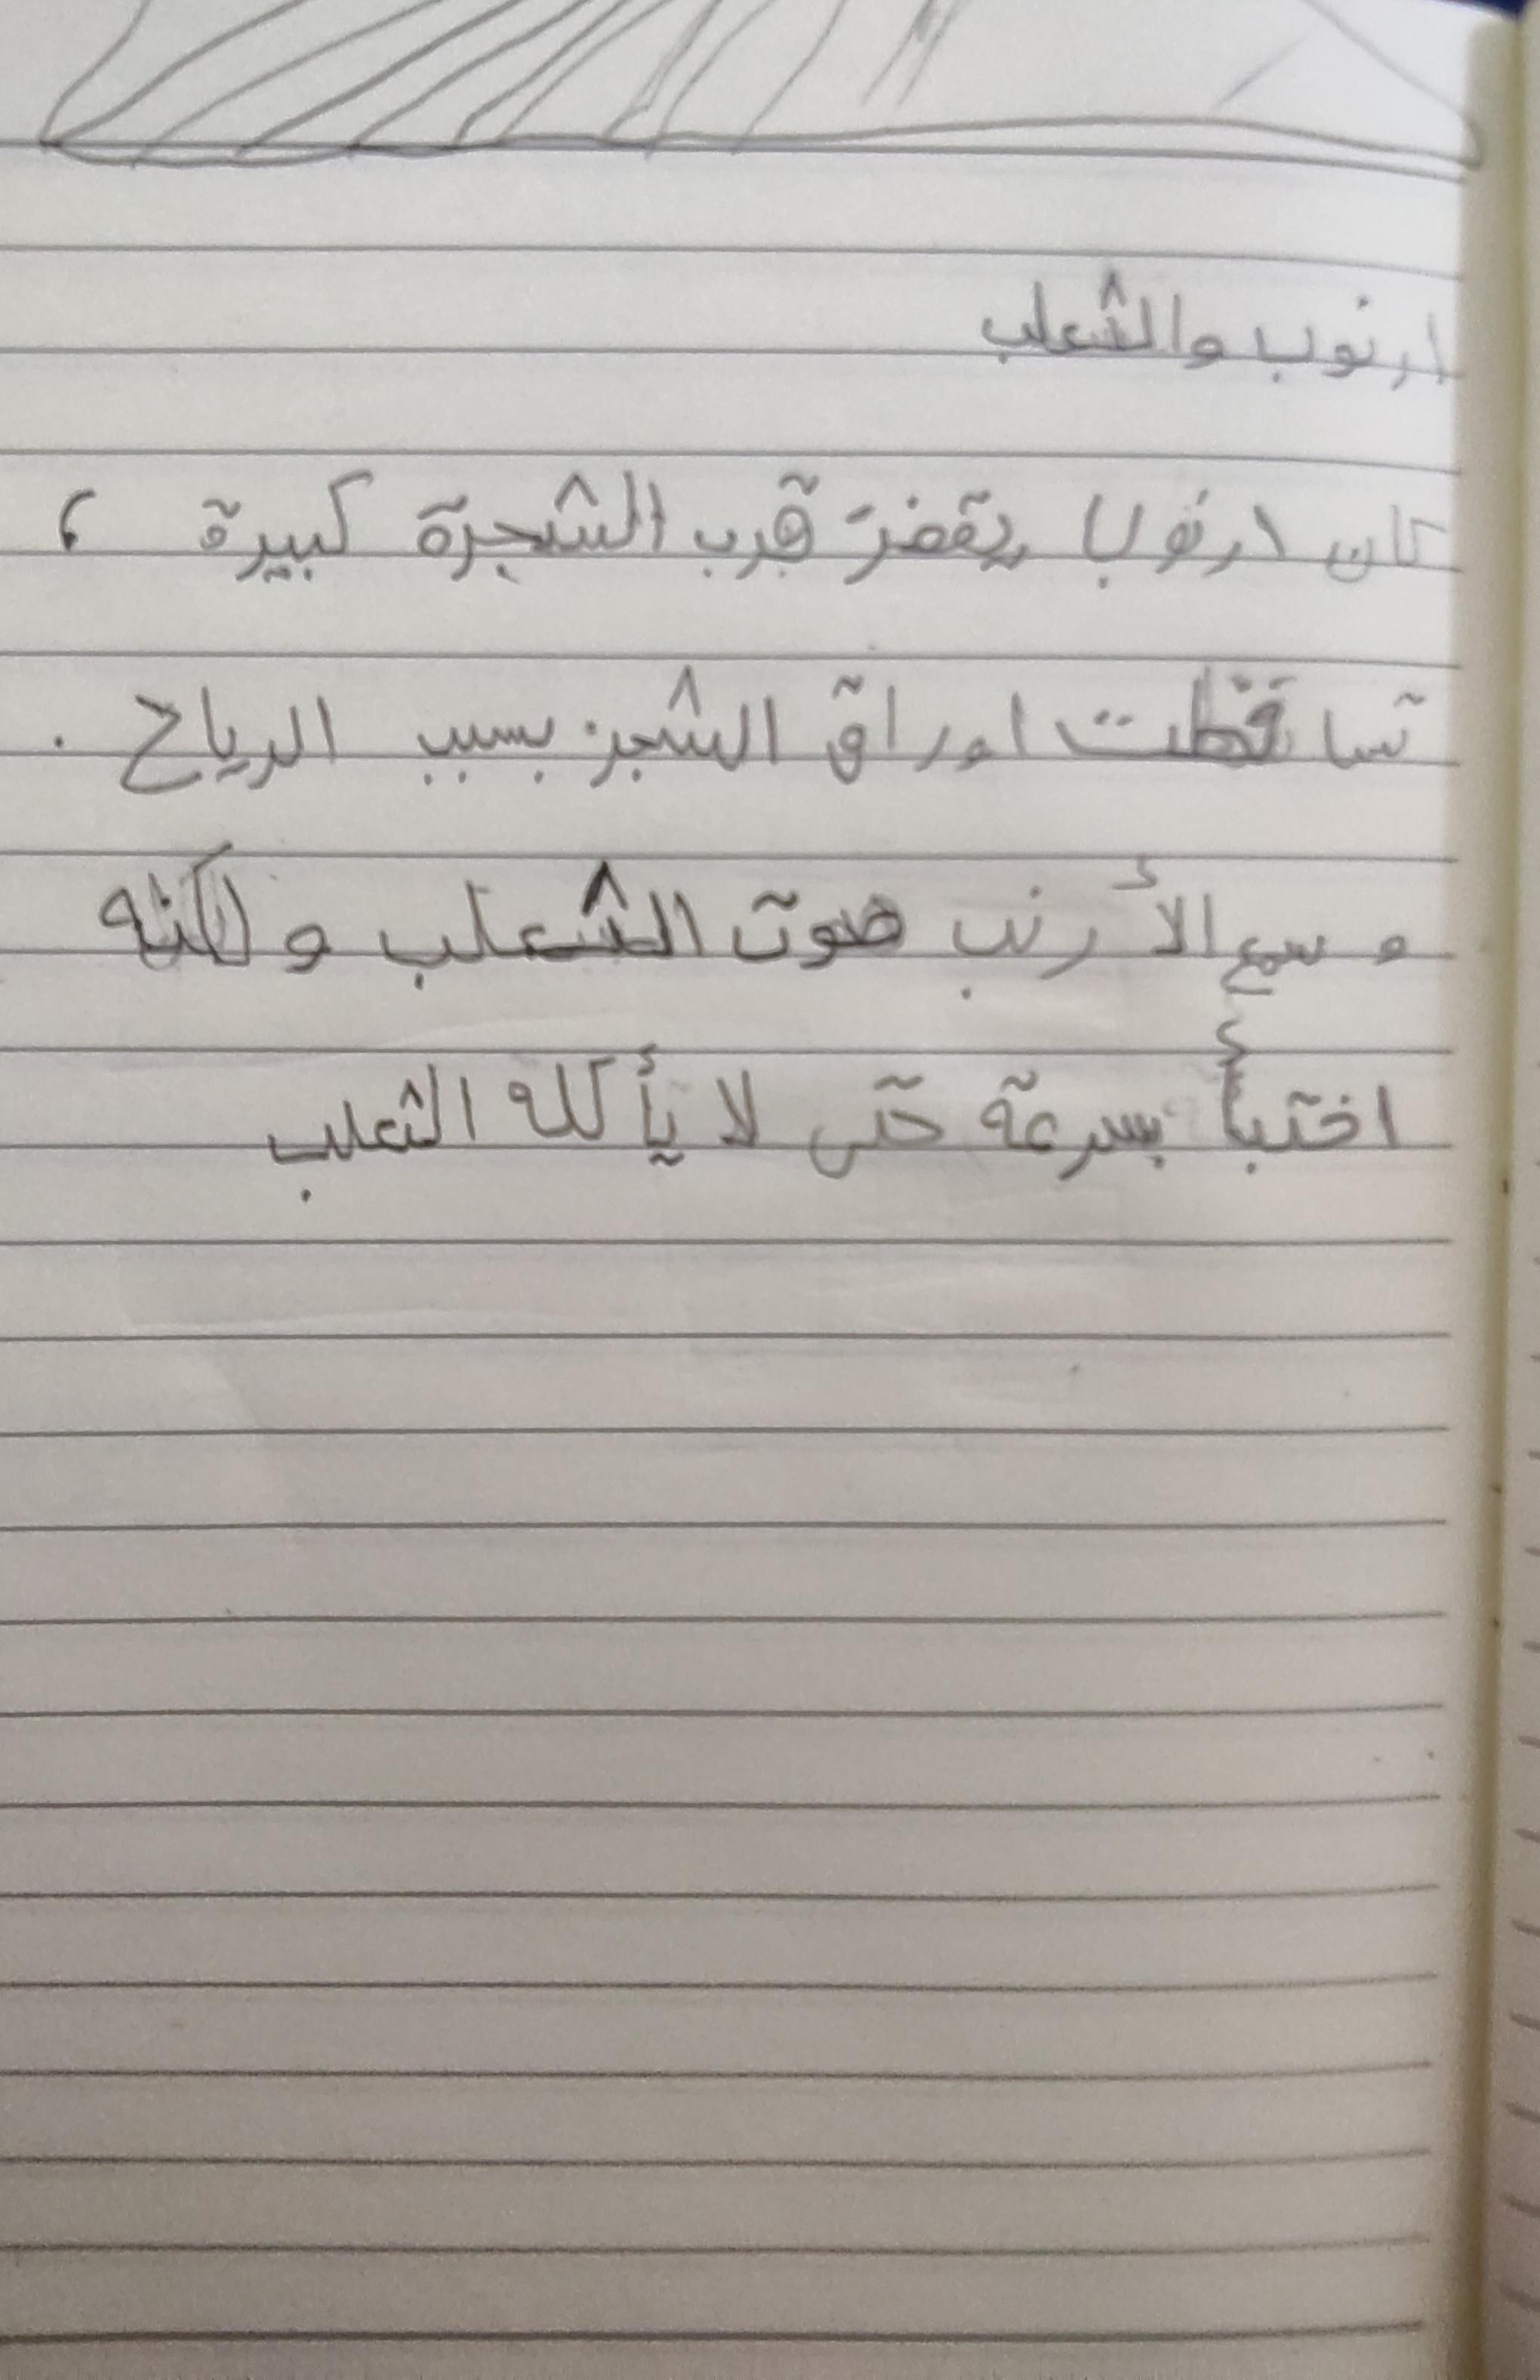 ارنوب والثعلب
كان ارنوب يقفز قرب الشجرة كبيرة ،
تساقطت اوراق الشجر بسبب الرياح .
و سمع الأرنب صوت الثعلب و لكنه
اختبأ بسرعة حتى لا يأكله الثعلب